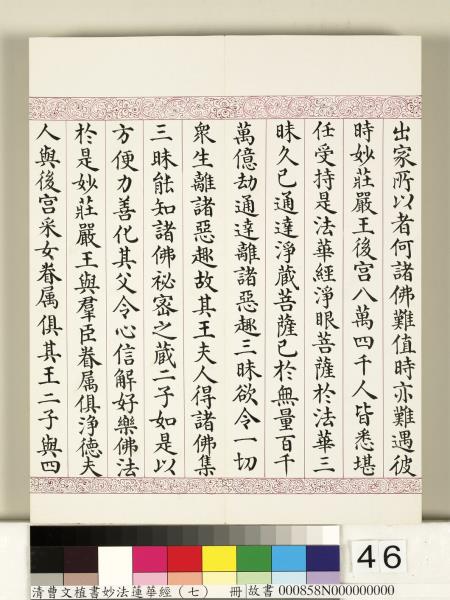 出家所以者何諸佛難值時亦難遇彼
時妙莊嚴王後宮八萬四千人皆悉堪
任受持是法華經淨眼菩薩於法華三
昧久已通達淨藏菩薩已於無量百千
萬億劫通達離諸惡趣三昧欲令一切
衆生離諸惡趣故其王夫人得諸佛集
三昧能知諸佛祕密之藏二子如是以
方便力善化其父令心信解好樂佛法
於是妙莊嚴王與羣臣眷属俱淨德夫
人與後宮采女眷属俱其王二子與四
46
清曹文植書妙法蓮華經（七） 冊 故書 000858N000000000